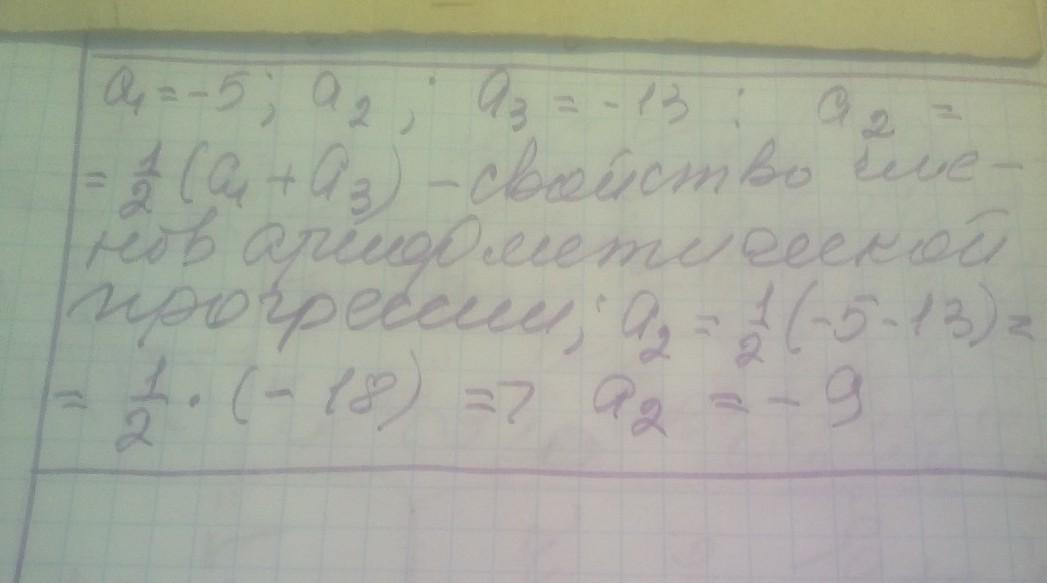 a₁ = -5; a₂ ; a₃ = -13 : a₂ =
= 1/2 (a₁ + a₃) - свойство чле-
нов арифметической
прогрессии; a₂ = 1/2 (-5 - 13) =
= 1/2 · (- 18) => a₂ = - 9